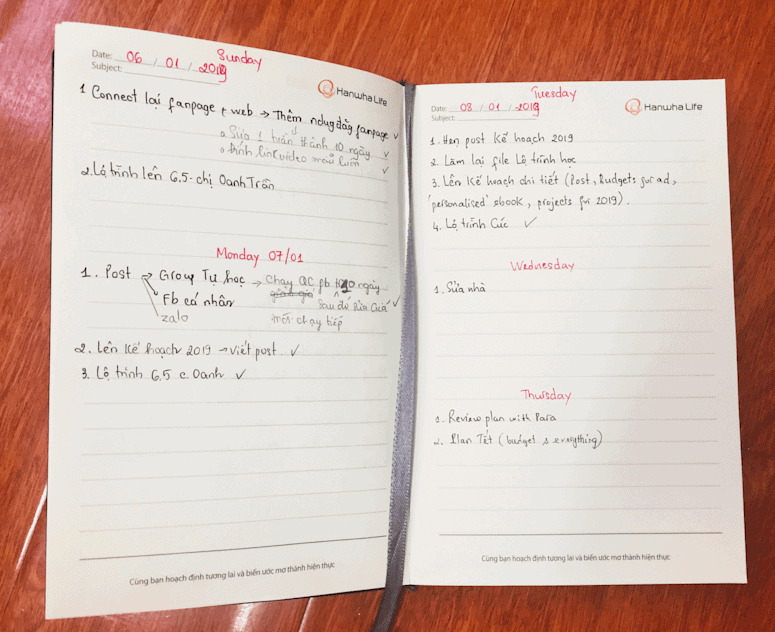 Sunday
Date: 06 / 01 / 2019
Subject:
Hanwha Life
1 Connect lại fanpage + web → Thêm ndung đăng fanpage ✓
Sửa 1 tuần thành 10 ngày ✓
Đính link video mẫu luôn ✓
2. Lộ trình lên 6.5 - chị Oanh Trần
Monday 07/01
1. Post → Group Tự học → Chạy QC fb 10 ngày
Fb cá nhân sau đó sửa Quá ✓
zalo mới chạy tiếp
2. Lên kế hoạch 2019 → viết post ✓
3. Lộ trình 6.5 c. Oanh ✓
Cùng bạn hoạch định tương lai và biến ước mơ thành hiện thực
Tuesday
Date: 08 / 01 / 2019
Subject:
Hanwha Life
1. Hẹn post kế hoạch 2019
2. Làm lại file Lộ trình học
3. Lên kế hoạch chi tiết (Post, Budgets for ad,
'personalised' ebook, projects for 2019).
4. Lộ trình Cúc ✓
Wednesday
1. Sửa nhà
Thursday
1. Review plan with Para
2. Plan Tết (budget & everything)
Cùng bạn hoạch định tương lai và biến ước mơ thành hiện thực